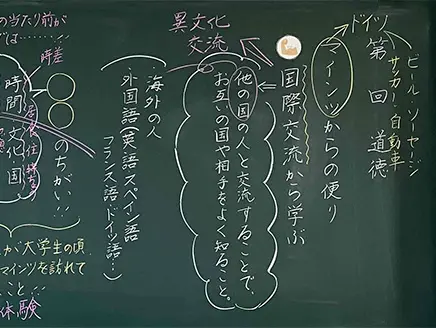 ドイツ
・ビール・ソーセージ
サッカー・自動車
第 回 道徳
マインツからの便り
国際交流から学ぶ
⇐
他の国の人と交流することで、
お互いの国や相手をよく知ること。
異文化
交流
海外の人
外国語(英語・スペイン語
フランス語・ドイツ語…)
の当たり前が
では………
時差
時間
文化
国
のちがい…
が大学生の頃、
マインツを訪れて
こと…
体験